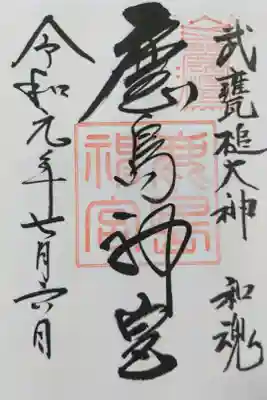 武甕槌大神 和魂
鹿島神宮
鹿島
神宮
令和元年七月六日